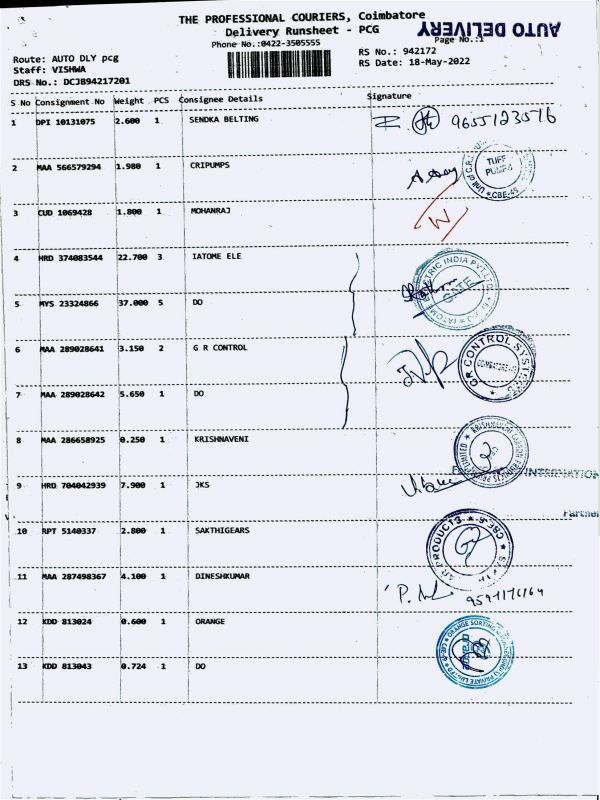 THE PROFESSIONAL COURIERS, Coimbatore
AUTO DELIVERY
Delivery Runsheet - PCG
Page No.:1
Phone No.:0422-3505555
Route: AUTO DLY pcg
RS No.: 942172
Staff: VISHWA
RS Date: 18-May-2022
DRS No.: DCJB94217201
S No Consignment No Weight PCS Consignee Details Signature
1 DPI 10131075 2.600 1 SENDKA BELTING 9655123516
2 MAA 566579294 1.980 1 CRIPUMPS
TUFF PUMPS
CBE-49
3 CUD 1069428 1.800 1 MOHANRAJ
4 HRD 374083544 22.700 3 IATOME ELE
GATE
5 MYS 23324866 37.000 5 DO
6 MAA 289028641 3.150 2 G R CONTROL
GR CONTROL SYSTEMS
7 MAA 289028642 5.650 1 DO
8 MAA 286658925 0.250 1 KRISHNAVENI
INTERNATION
9 HRD 704042939 7.900 1 JKS
Partner
10 RPT 5140337 2.800 1 SAKTHIGEARS
11 MAA 287498367 4.100 1 DINESHKUMAR
12 KDD 813024 0.600 1 ORANGE
13 KDD 813043 0.724 1 DO